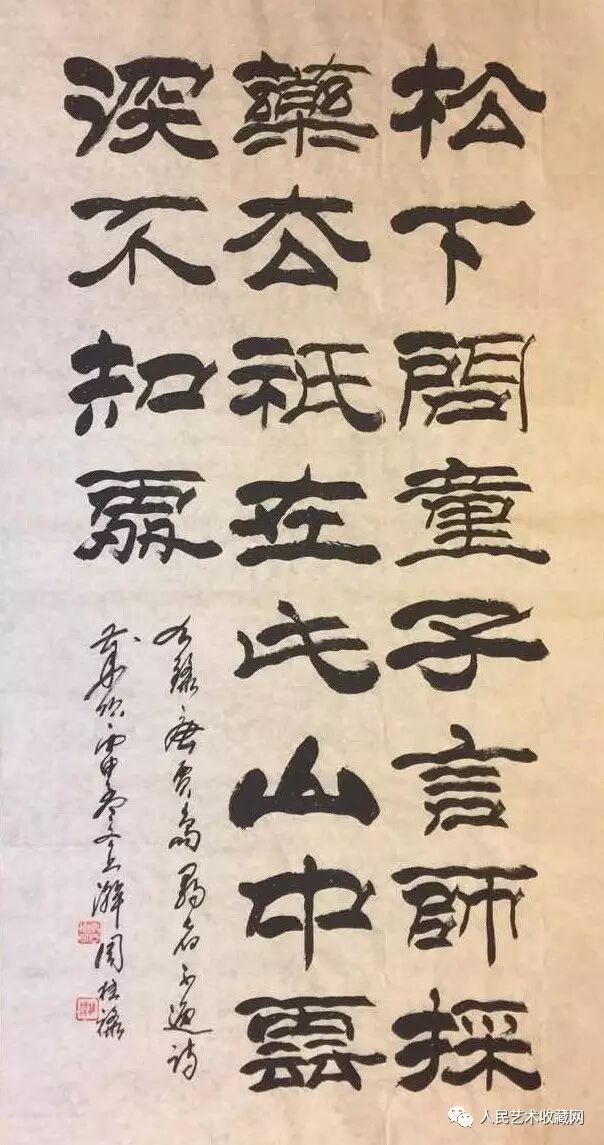 松下問童子言師採
藥去祇在此山中雲
深不知處
右錄唐賈島尋者不遇詩
丙申冬上澣周桂
人民艺术收藏网